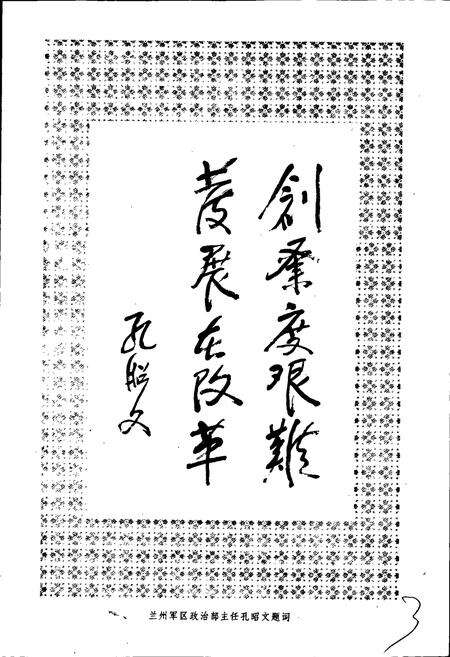 創業度艰難
发展在改革
孔昭文
兰州军区政治部主任孔昭文题词
3